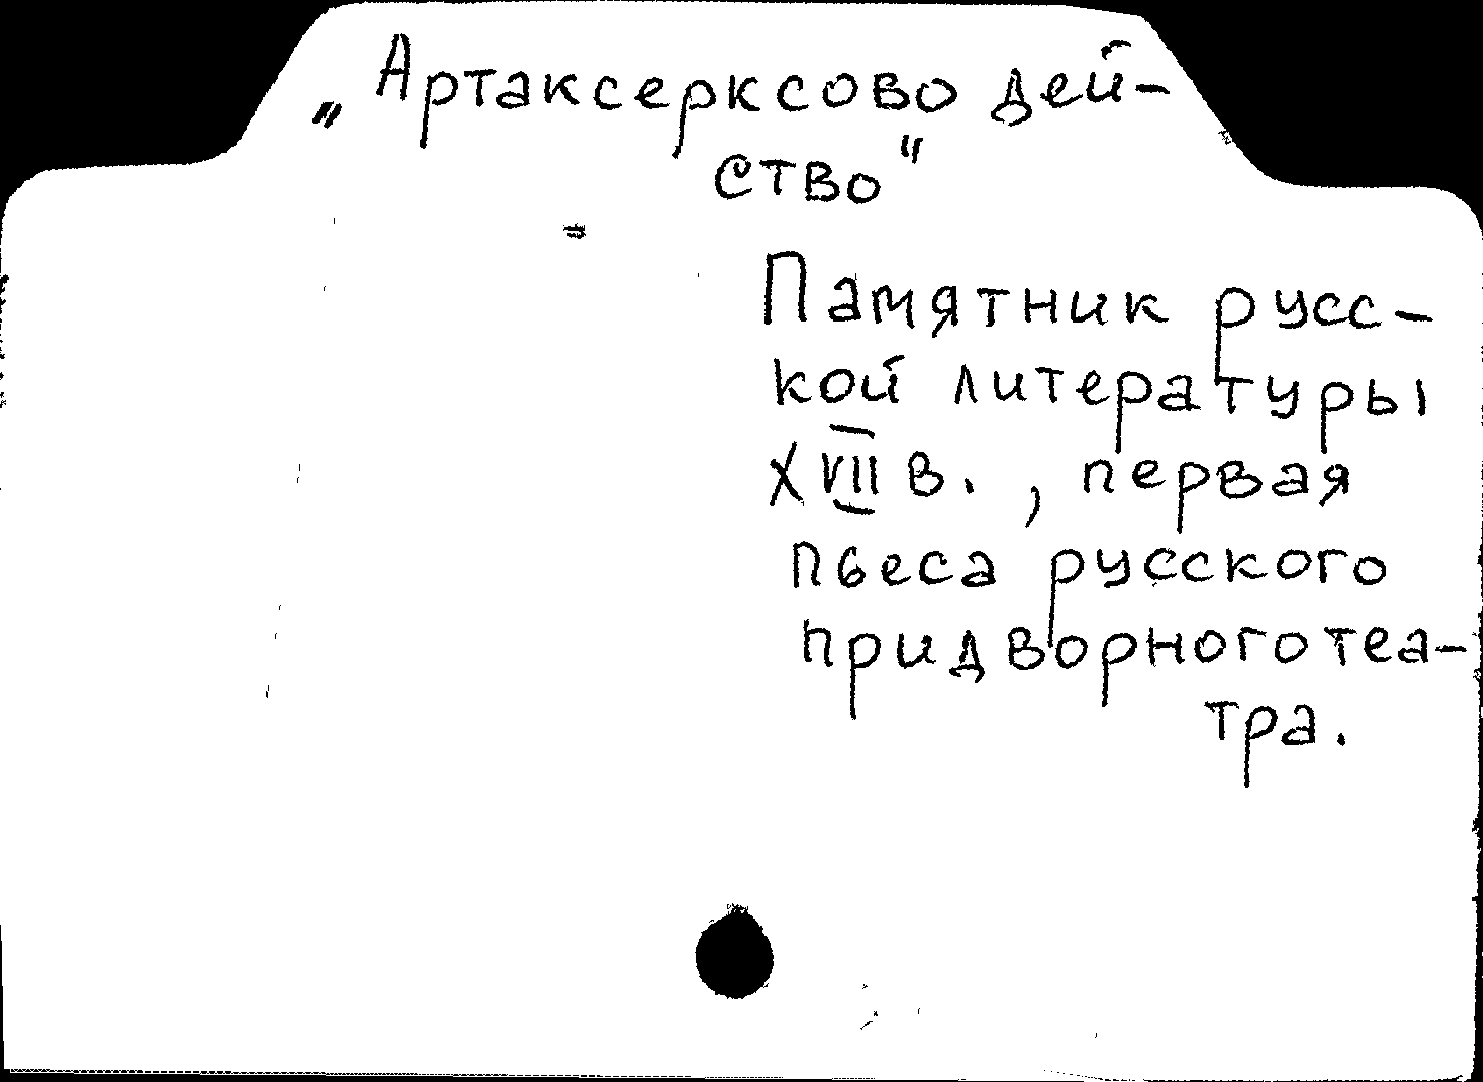 „Артаксерксово дей-
ство"
Памятник русс-
кой литературы
XVII в., первая
пьеса русского
придворного теа-
тра.